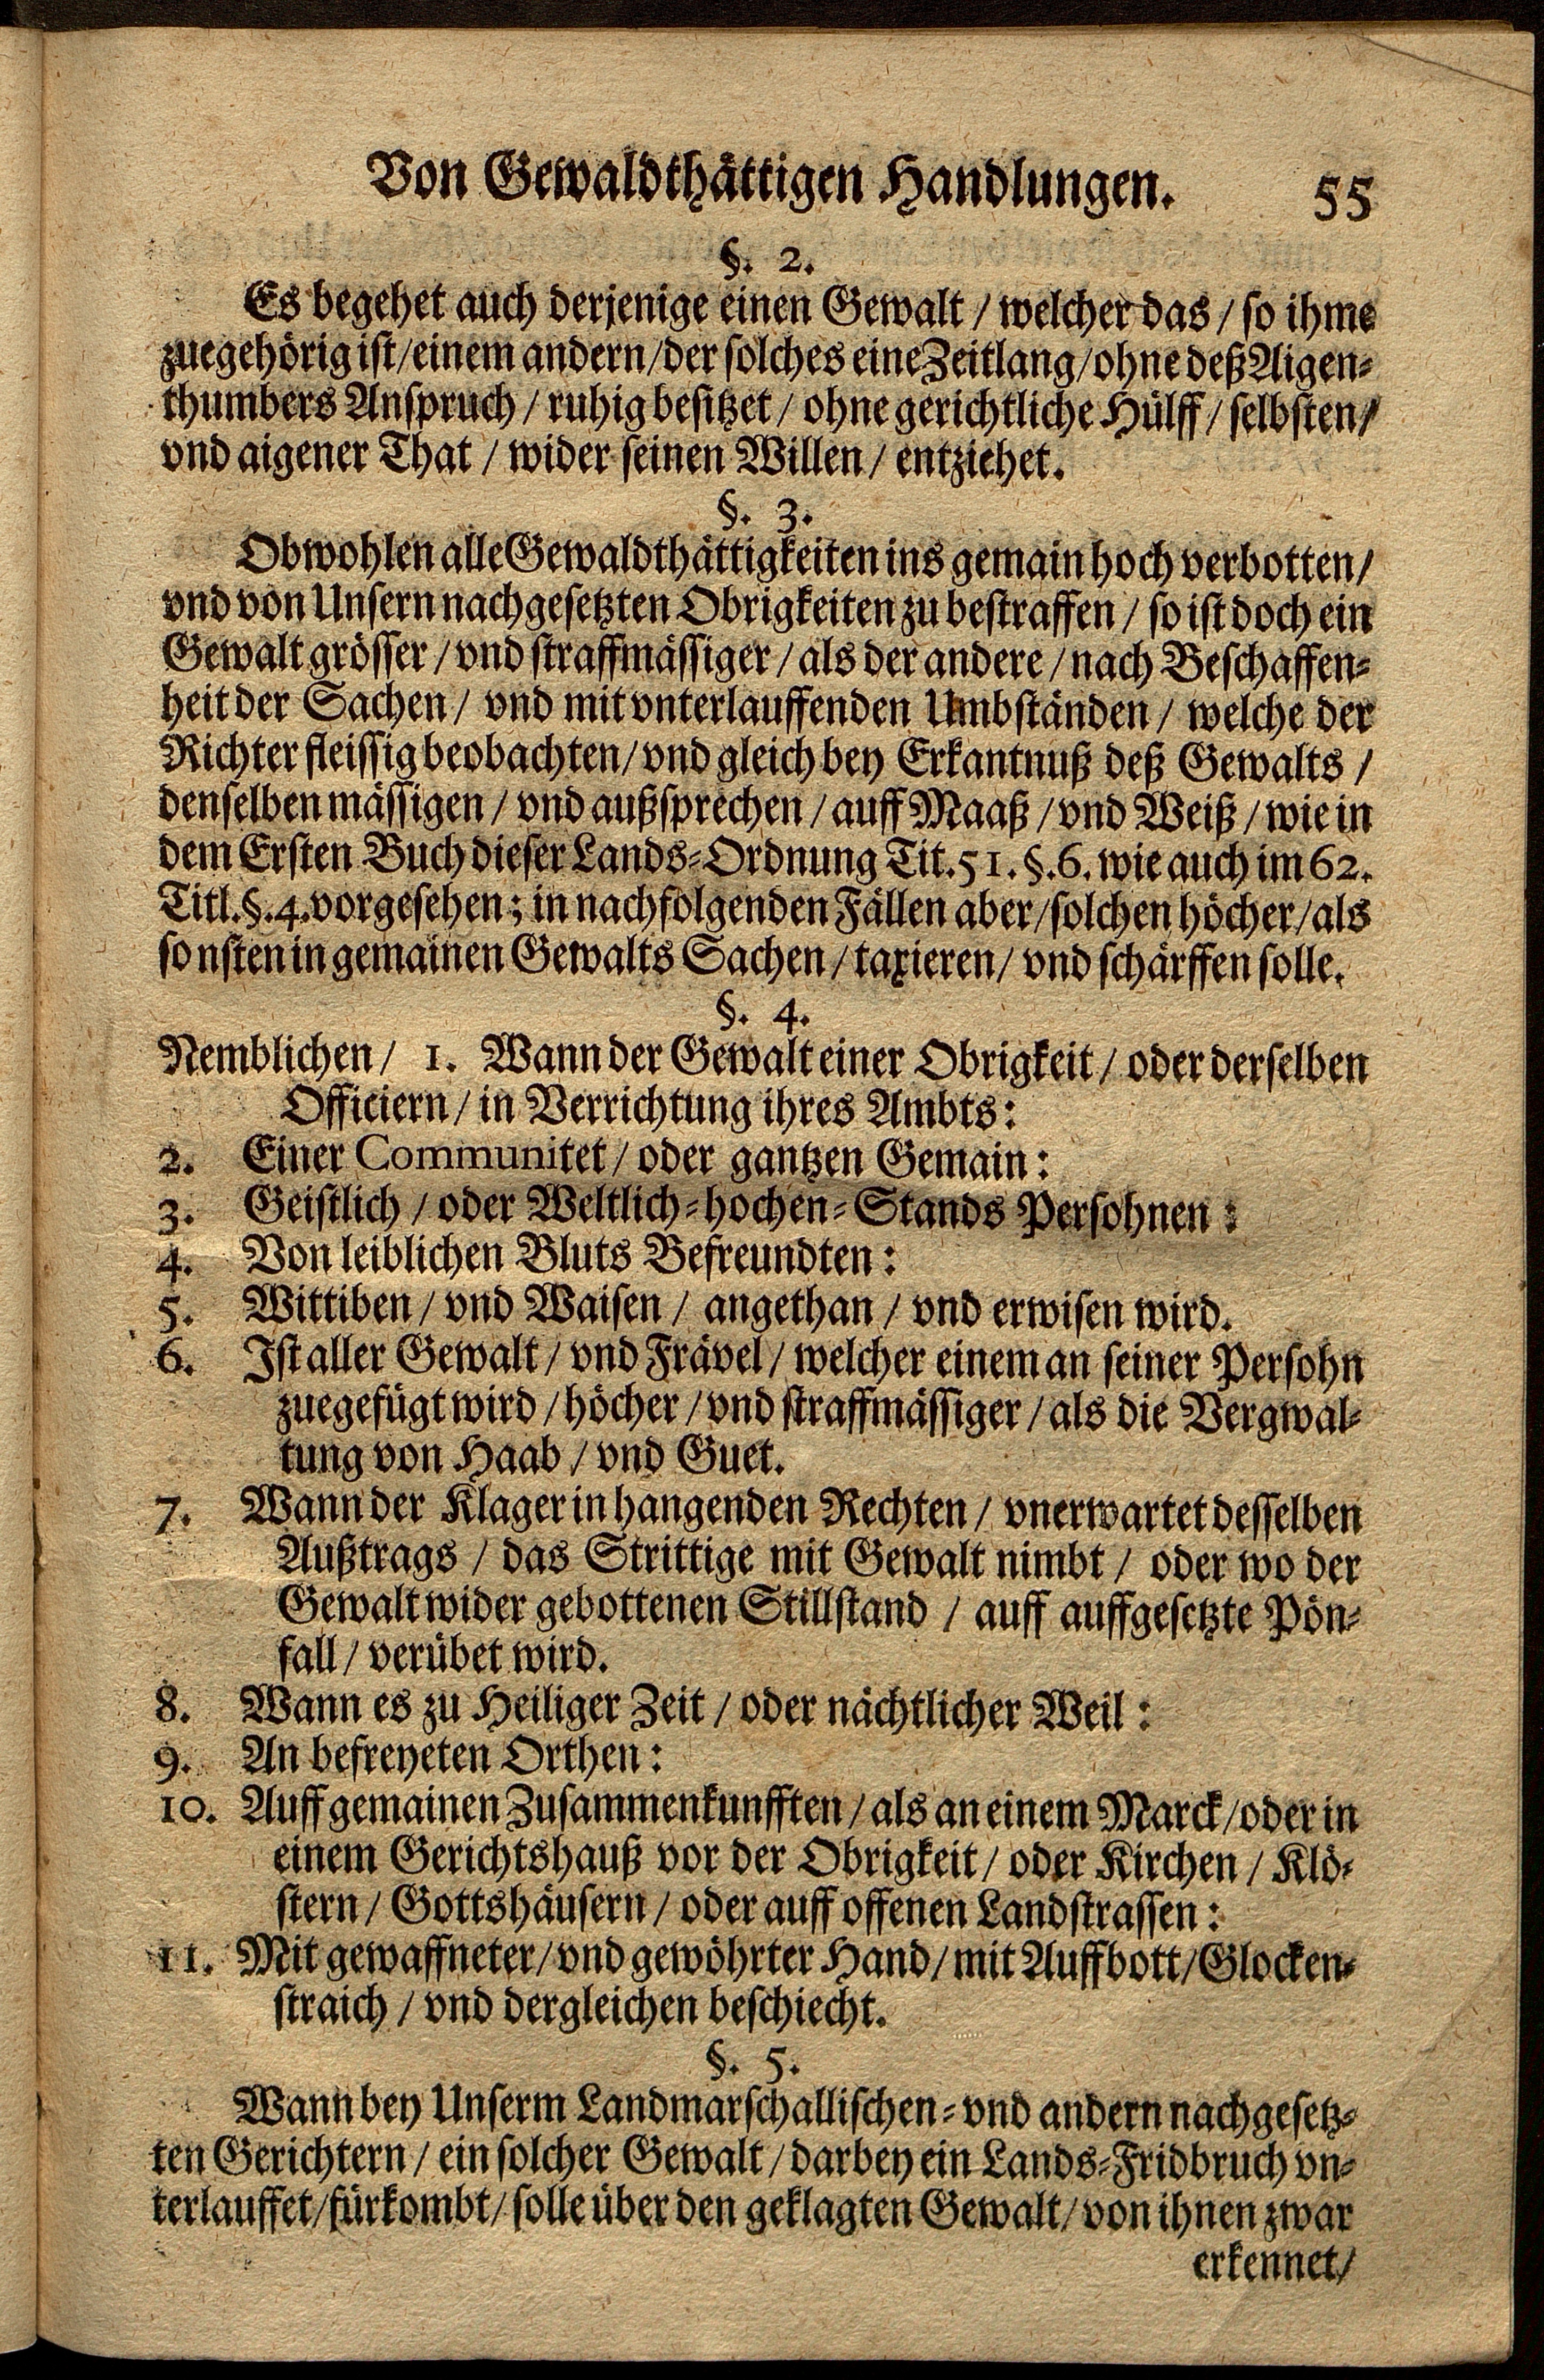 Von Gewaldthättigen Handlungen. 55
§. 2.
Es begehet auch derjenige einen Gewalt / welcher das / so ihme
zuegehörig ist / einem andern / der solches eine Zeitlang / ohne deß Aigen-
thumbers Anspruch / ruhig besitzet / ohne gerichtliche Hülff / selbsten /
vnd aigener That / wider seinen Willen / entziehet.
§. 3.
Obwohlen alle Gewaldthättigkeiten ins gemain hoch verbotten /
vnd von Unsern nachgesetzten Obrigkeiten zu bestraffen / so ist doch ein
Gewalt grösser / vnd straffmässiger / als der andere / nach Beschaffen-
heit der Sachen / vnd mit vnterlauffenden Umbständen / welche der
Richter fleissig beobachten / vnd gleich bey Erkantnuß deß Gewalts /
denselben mässigen / vnd außsprechen / auff Maaß / vnd Weiß / wie in
dem Ersten Buch dieser Lands-Ordnung Tit. 51. §. 6. wie auch im 62.
Titl. §. 4. vorgesehen; in nachfolgenden Fällen aber / solchen höcher / als
sonsten in gemainen Gewalts Sachen / taxieren / vnd schärffen solle.
§. 4.
Nemblichen / 1. Wann der Gewalt einer Obrigkeit / oder derselben
Officiern / in Verrichtung ihres Ambts:
2. Einer Communitet / oder gantzen Gemain:
3. Geistlich / oder Weltlich-hochen-Stands Persohnen:
4. Von leiblichen Bluts Befreundten:
5. Wittiben / vnd Waisen / angethan / vnd erwisen wird.
6. Ist aller Gewalt / vnd Frävel / welcher einem an seiner Persohn
zuegefügt wird / höcher / vnd straffmässiger / als die Vergwal-
tung von Haab / vnd Guet.
7. Wann der Klager in hangenden Rechten / vnerwartet desselben
Außtrags / das Strittige mit Gewalt nimbt / oder wo der
Gewalt wider gebottenen Stillstand / auff auffgesetzte Pön-
fall / verübet wird.
8. Wann es zu Heiliger Zeit / oder nächtlicher Weil:
9. An befreyeten Orthen:
10. Auff gemainen Zusammenkunfften / als an einem Marck / oder in
einem Gerichtshauß vor der Obrigkeit / oder Kirchen / Klö-
stern / Gottshäusern / oder auff offenen Landstrassen:
11. Mit gewaffneter / vnd gewöhrter Hand / mit Auffbott / Glocken-
straich / vnd dergleichen beschiecht.
§. 5.
Wann bey Unserm Landmarschallischen- vnd andern nachgesetz-
ten Gerichtern / ein solcher Gewalt / darbey ein Lands-Fridbruch vn-
terlauffet / fürkombt / solle über den geklagten Gewalt / von ihnen zwar
erkennet /